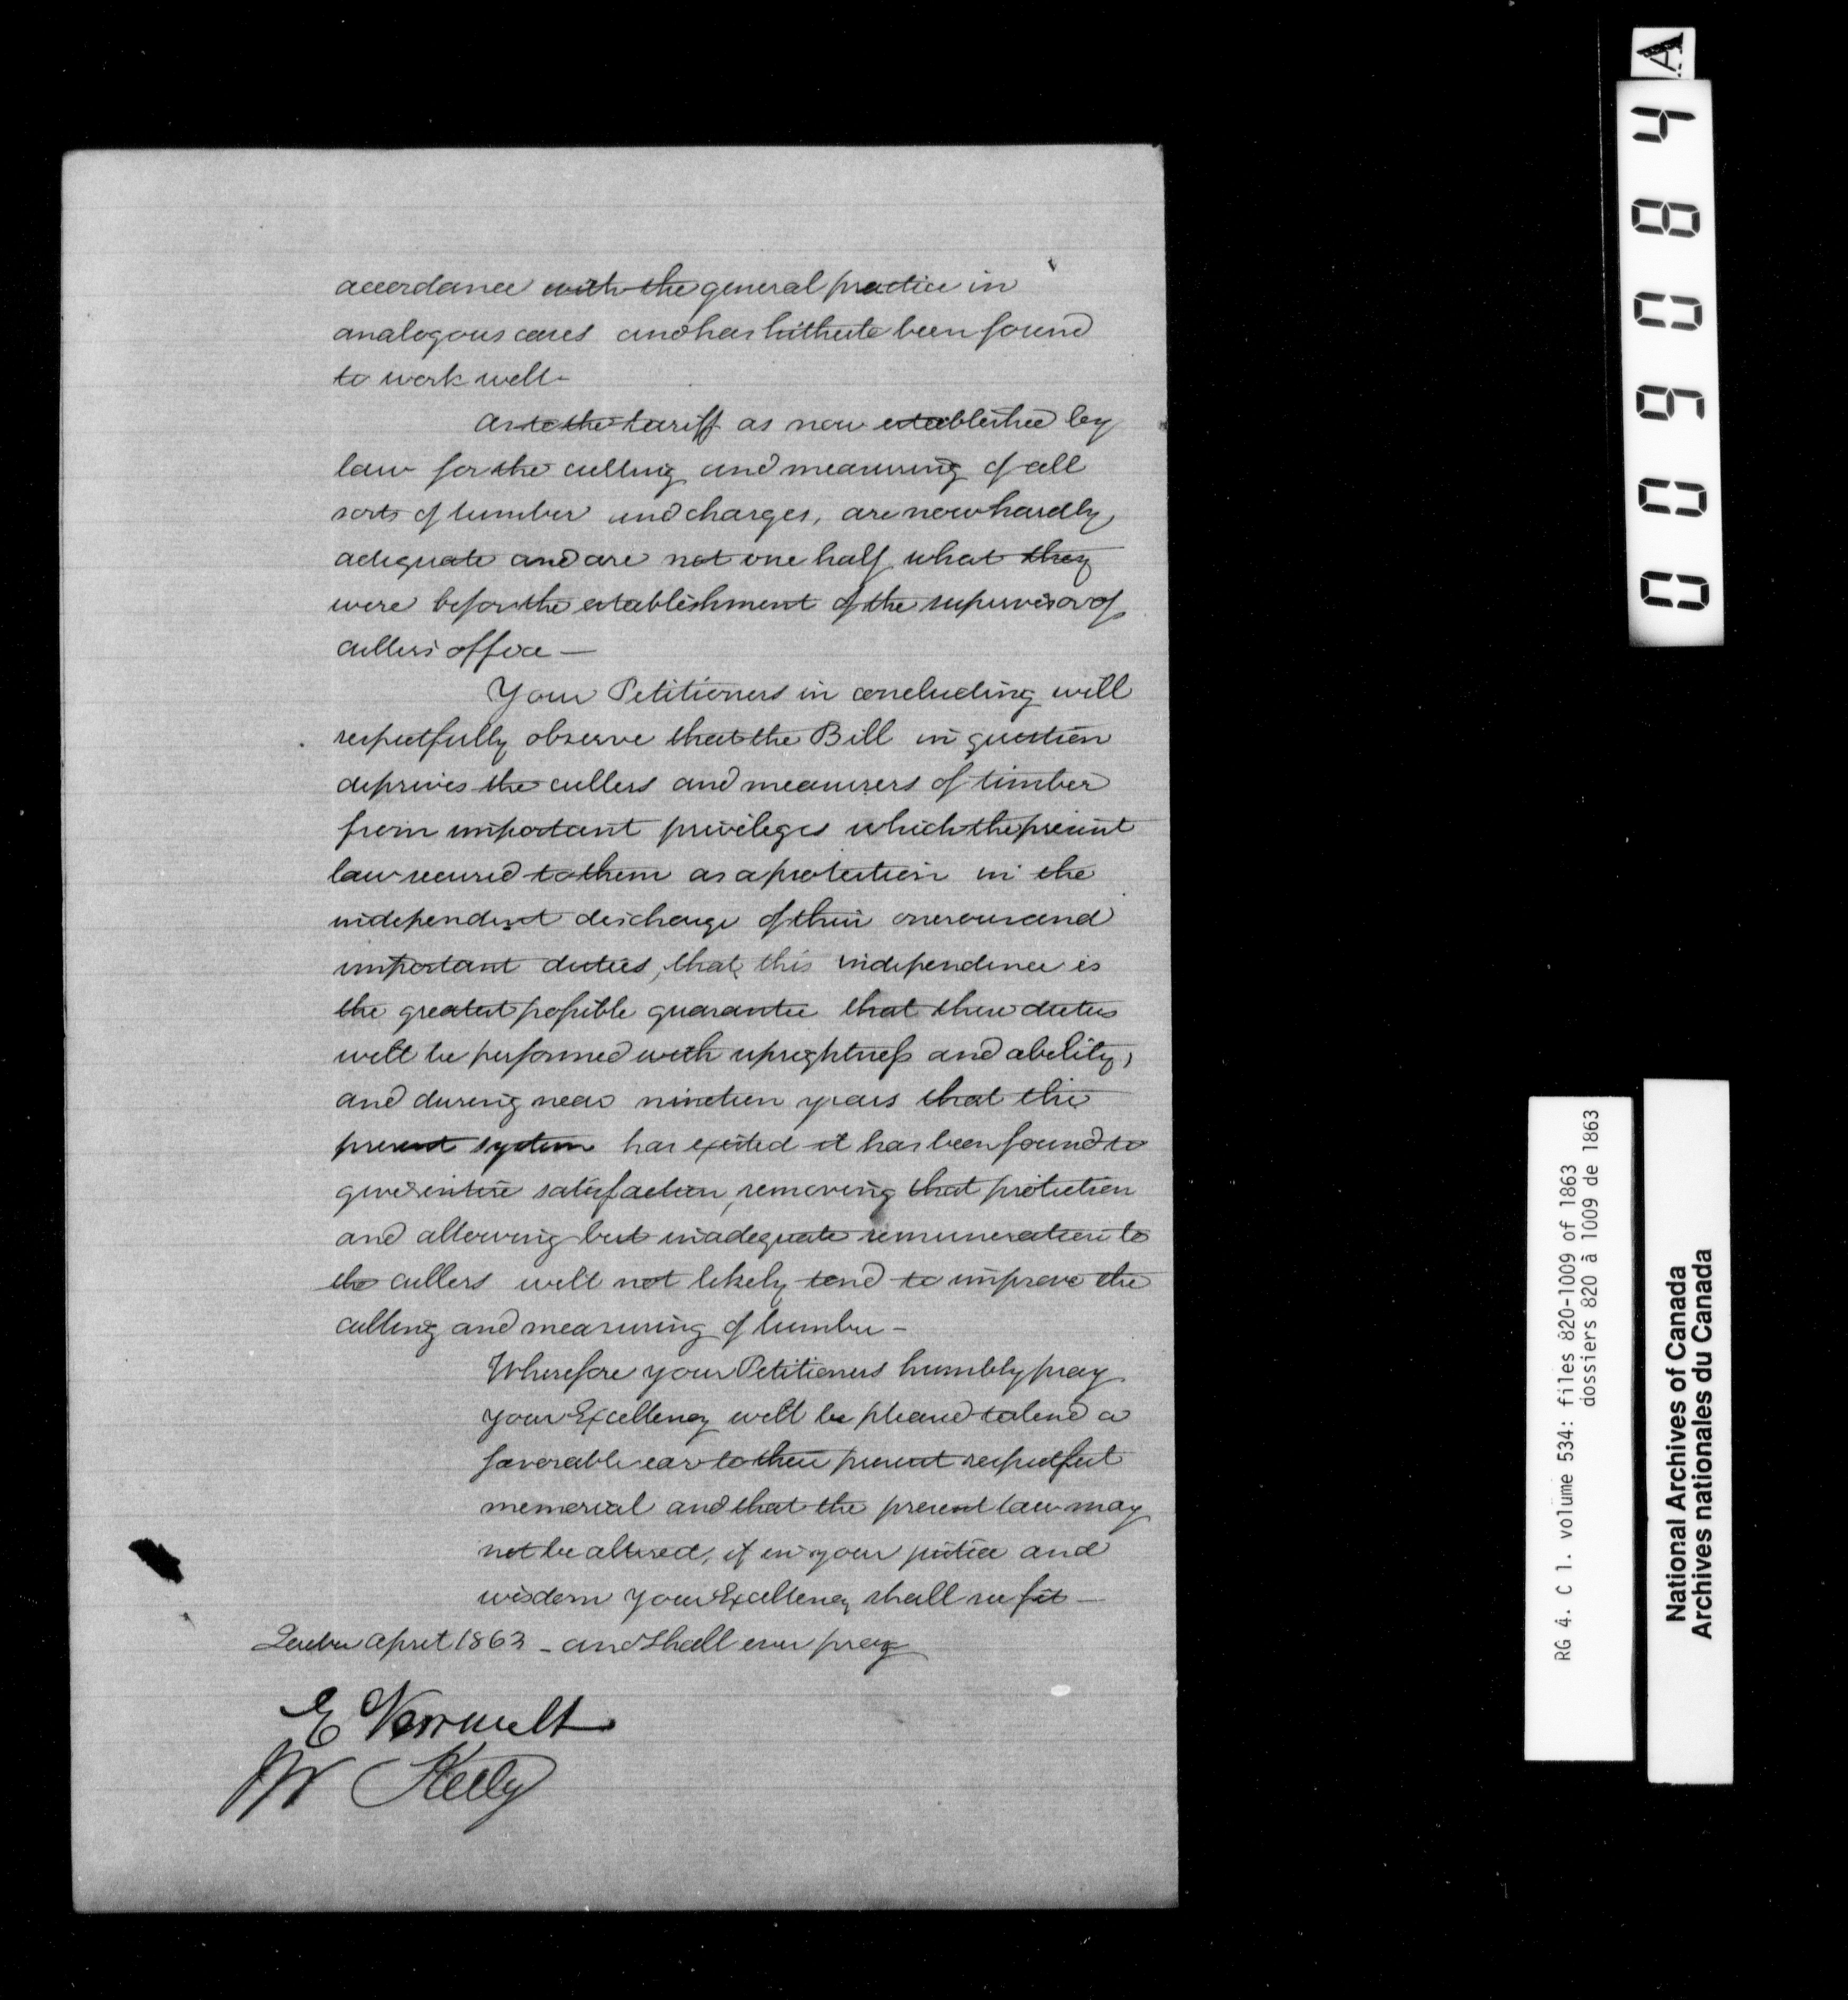 accordance with the general practice in
analogous cases and has hitherto been found
to work well -
As to the tariff as now established by
law for the culling and measuring of all
sorts of lumber and charges, are now hardly
adequate and are not one half what they
were before the establishment of the supervisor of
cullers office —
Your Petitioners in concluding will
respectfully observe that the Bill in question
deprives the cullers and measurers of timber
from important privileges which the present
law secured to them as a protection in the
independent discharge of their onerous and
important duties, that this independence is
the greatest possible guarantee that these duties
will be performed with uprightness and ability,
and during near nineteen years that the
present system has existed it has been found to
give entire satisfaction, removing that protection
and allowing but inadequate remuneration to
the cullers will not likely tend to improve the
culling and measuring of lumber -
Wherefore your Petitioners humbly pray
your Excellency will be pleased to lend a
favorable ear to their present respectful
memorial and that the present law may
not be altered, if in your justice and
wisdom your Excellency shall see fit —
Quebec april 1863 - and shall ever pray
E Verrault
W Kelly
009084
A
RG 4. C 1. volume 534: files 820-1009 of 1863
dossiers 820 à 1009 de 1863
National Archives of Canada
Archives nationales du Canada